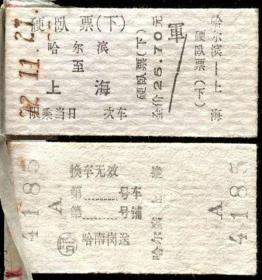 硬卧票(下)
哈尔滨
至
上海
限乘当日 次车
硬卧票(下)
全价25.70元
軍
哈尔滨—上海
硬卧票(下)
A
4185
换车无效
第 号车
第 号铺
哈南岗送
哈尔滨
上海
A
4185